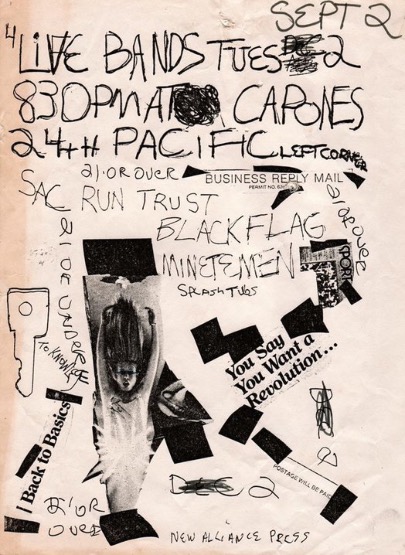 SEPT 2
4 LIVE BANDS TUES 2
830PM AT CAPONES
24TH PACIFIC LEFT CORNER
21·OR OVER
BUSINESS REPLY MAIL
PERMIT NO.
SAC RUN TRUST
21 OR OVER
BLACK FLAG
MINETEMEN
SPLASH TUBS
21 OR UNDER
TO KNOW
SPORT
You Say
You Want a
Revolution...
| Back to Basics
POSTAGE WILL BE PAID
DEC 2
21'OR
OVER
NEW ALLIANCE PRESS